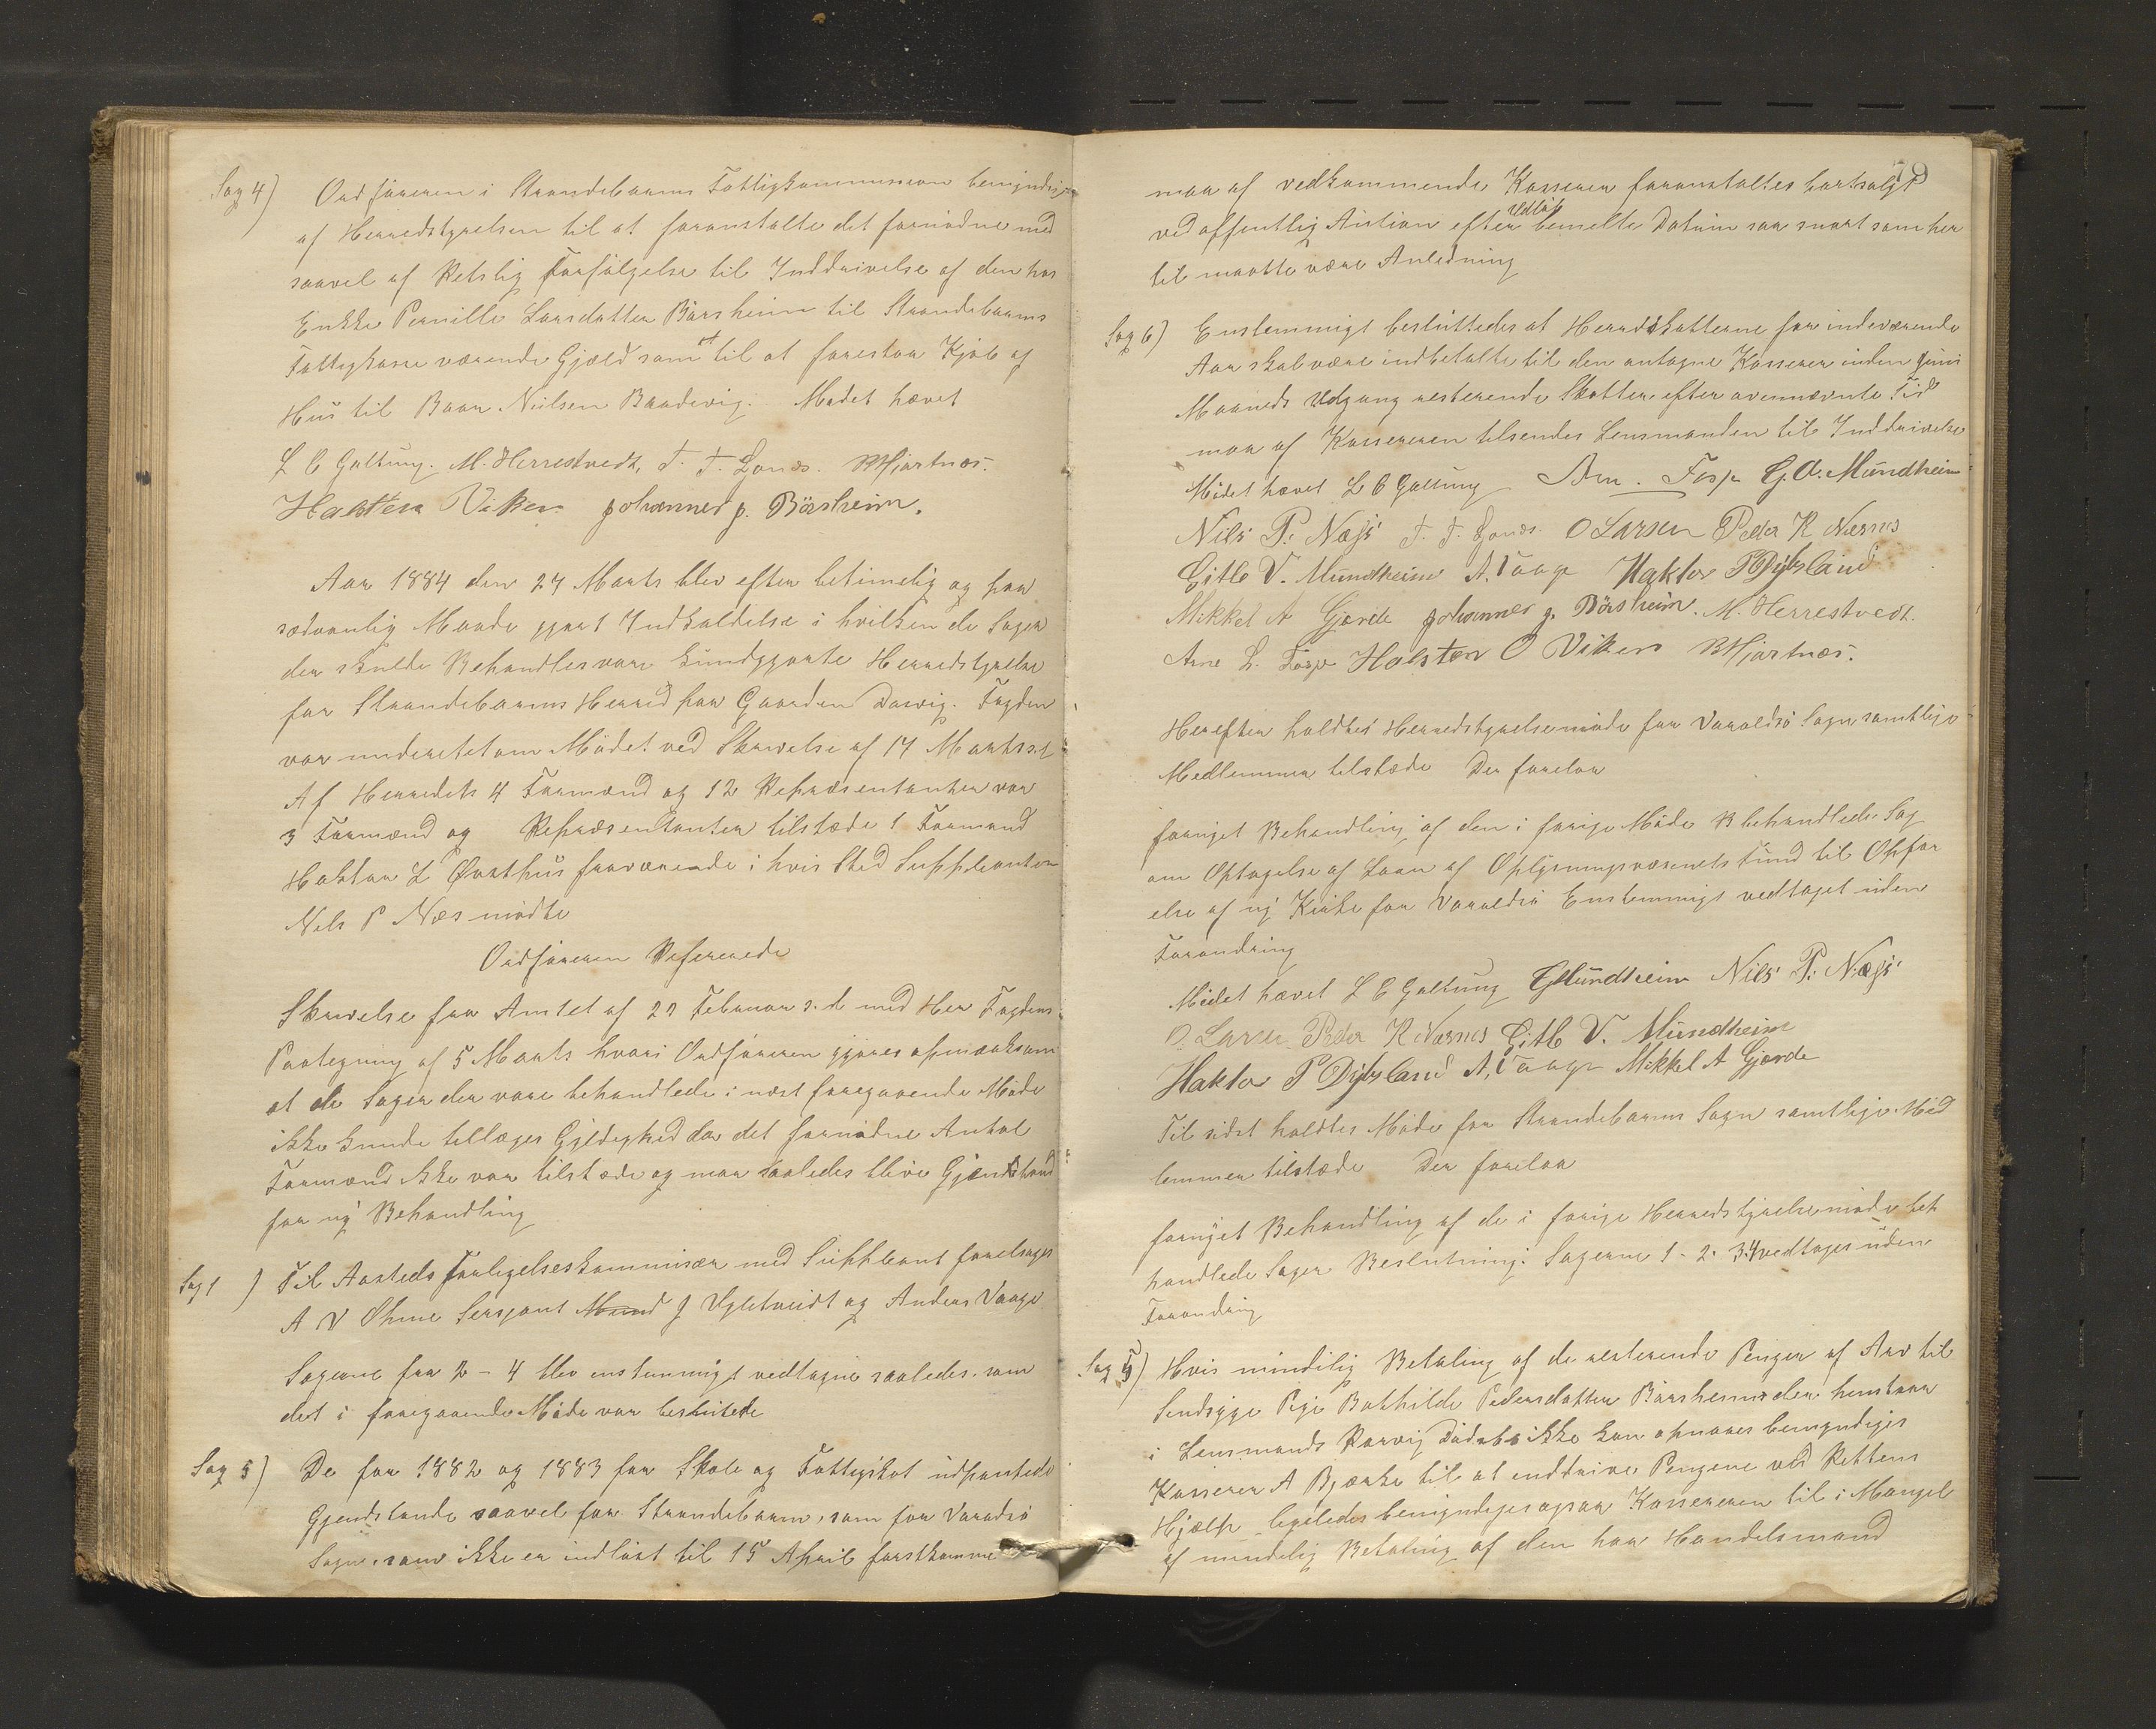 Sag 4) Ordføreren i Strandebarms Fattigkommission bemyndiges
af Herredstyrelsen til at foranstalte det fornødne med
saavel af Retslig Forfølgelse til Inddrivelse af den hos
Enkke Pernille Larsdatter Børsheim til Strandebarms
Fattigkasse værende Gjæld samt til at forestaa Kjøb af
Hus til Baar Nielsen Baadevig. Mødet hævet
L C Galtung. M. Herrestvedt, T. T. Sonds. Hjartnæs.
Halsten Viken Johannes J. Børsheim.
Aar 1884 den 24 Marts blev efter betimelig og paa
sædvanlig Maade gjort Indkaldelse i hvilken de Sager
der skulde Behandles vare kundgjorte Herredstyrelse
for Strandebarms Herred paa Gaarden Davig. Fogden
var underrettet om Mødet ved Skrivelse af 14 Marts s.A
Af Herredets 4 Formænd og 12 Repræsentanter var
3 Formænd og Repræsentanter tilstæde 1 Formand
Haktor L Øvsthus fraværende i hvis Sted Suppleanten
Nels P Næs mødte
Ordføreren Refererede
Skrivelse fra Amtet af 27 Februar s. A med Her Fogdens
Paategning af 5 Marts hvori Ordføreren gjøres opmærksom
at de Sager der vare behandlede i næst foregaaende Møde
ikke kunde tillægges Gyldighed da det fornødne Antal
Formænd ikke var tilstæde og maa saaledes blive Gjenstand
for ny Behandling
Sag 1 ) Til Aasteds Forligelseskommisær med Suppleant foretages
A V Ohme Sersjant Mund J Ugletveidt og Anders Vaage
Sagerne fra 2 - 4 blev enstemmigt vedtagne saaledes som
det i foregaaende Møde var besluttede
Sag 5) De for 1882 og 1883 for Skole og Fattigskat udpantede
Gjendstande saavel for Strandebarm, som for Varaldsø
Sogne, som ikke er indløst til 15 April førstkomme
79
maa af vedkommende Kasserer foranstaltes bortsolgt
ved offentlig Auction efter Udløb bemelte Datum saa snart som her
til maatte være Anledning
Sag 6) Enstemmigt besluttedes at Herredskatterne for indeværende
Aar skal være indbetalte til den antagne Kasserer inden Juni
Maaneds Udgang resterende Skatter efter ovennævnte Tid
maa af Kassereren tilsendes Lensmanden til Inddrivelse
Mødet hævet L C Galtung G. O. Mundheim
Nils P. Næss T. T. Sonds. O Larsen Peder K Nernes
Gitle V. Mundheim A. Vaage Haktor P Dysland
Mikkel A Gjerde Johannes J. Børsheim. M. Herrestvedt.
Arne L. Fosse Halsten O Viken Hjartnæs.
Herefter holdtes Herredstyrelsemøde for Varaldsø Sogn samtlige
Medlemmer tilstæde Der forelaa
fornyet Behandling af den i forige Møde behandlede Sag
om Optagelse af Laan af Oplysningsvæsenets Fund til Opfør
else af ny Kirke for Varaldsø Enstemmigt vedtaget uden
Forandring
Mødet hævet L C Galtung G Mundheim Nils P. Næss
O Larsen Peder K Nernes Gitle V. Mundheim
Haktor P Dysland A. Vaage Mikkel A Gjerde
Til sidst holdtes Møde for Strandebarms Sogn samtlige Med
lemmer tilstæde Der forelaa
fornyet Behandling af de i forige Herredstyrelsemøde beh
handlede Sager Beslutning: Sagerne 1. 2. 3. 4 vedtages uden
Forandring
Sag 5) Hvis mindelig Betaling af de resterende Penger af Arv til
Sindsyge Pige Bothilde Pedersdatter Børsheim der henstaar
i Lensmands Rørvig Dødsbo ikke kan opnaaes bemyndiges
Kasserer A Bjærke til at inddrive Pengene ved Rettens
Hjælp ligeledes bemyndiges ogsaa Kassereren til i Mangel
af mindelig Betaling af den hos Handelsmand